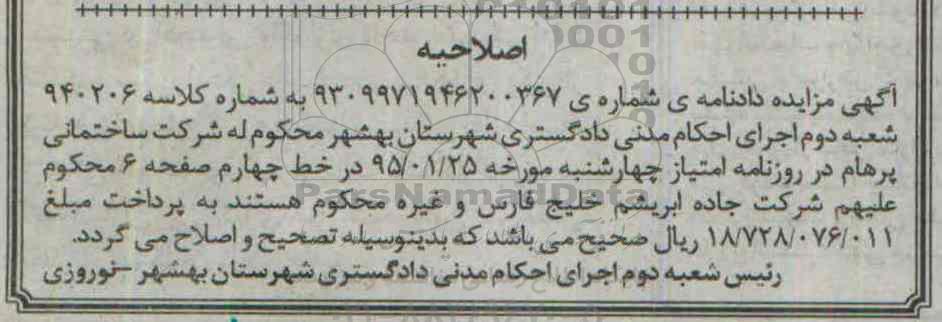 اصلاحیه
آگهی مزایده دادنامه ی شماره ی ۹۳۰۹۹۷۱۹۴۶۲۰۰۳۶۷ به شماره کلاسه ۹۴۰۲۰۶
شعبه دوم اجرای احکام مدنی دادگستری شهرستان بهشهر محکوم له شرکت ساختمانی
پرهام در روزنامه امتیاز چهارشنبه مورخه ۹۵/۰۱/۲۵ در خط چهارم صفحه ۶ محکوم
علیهم شرکت جاده ابریشم خلیج فارس و غیره محکوم هستند به پرداخت مبلغ
۱۸/۷۲۸/۰۷۶/۰۱۱ ریال صحیح می باشد که بدینوسیله تصحیح و اصلاح می گردد.
رئیس شعبه دوم اجرای احکام مدنی دادگستری شهرستان بهشهر -نوروزی
ParsNamadData